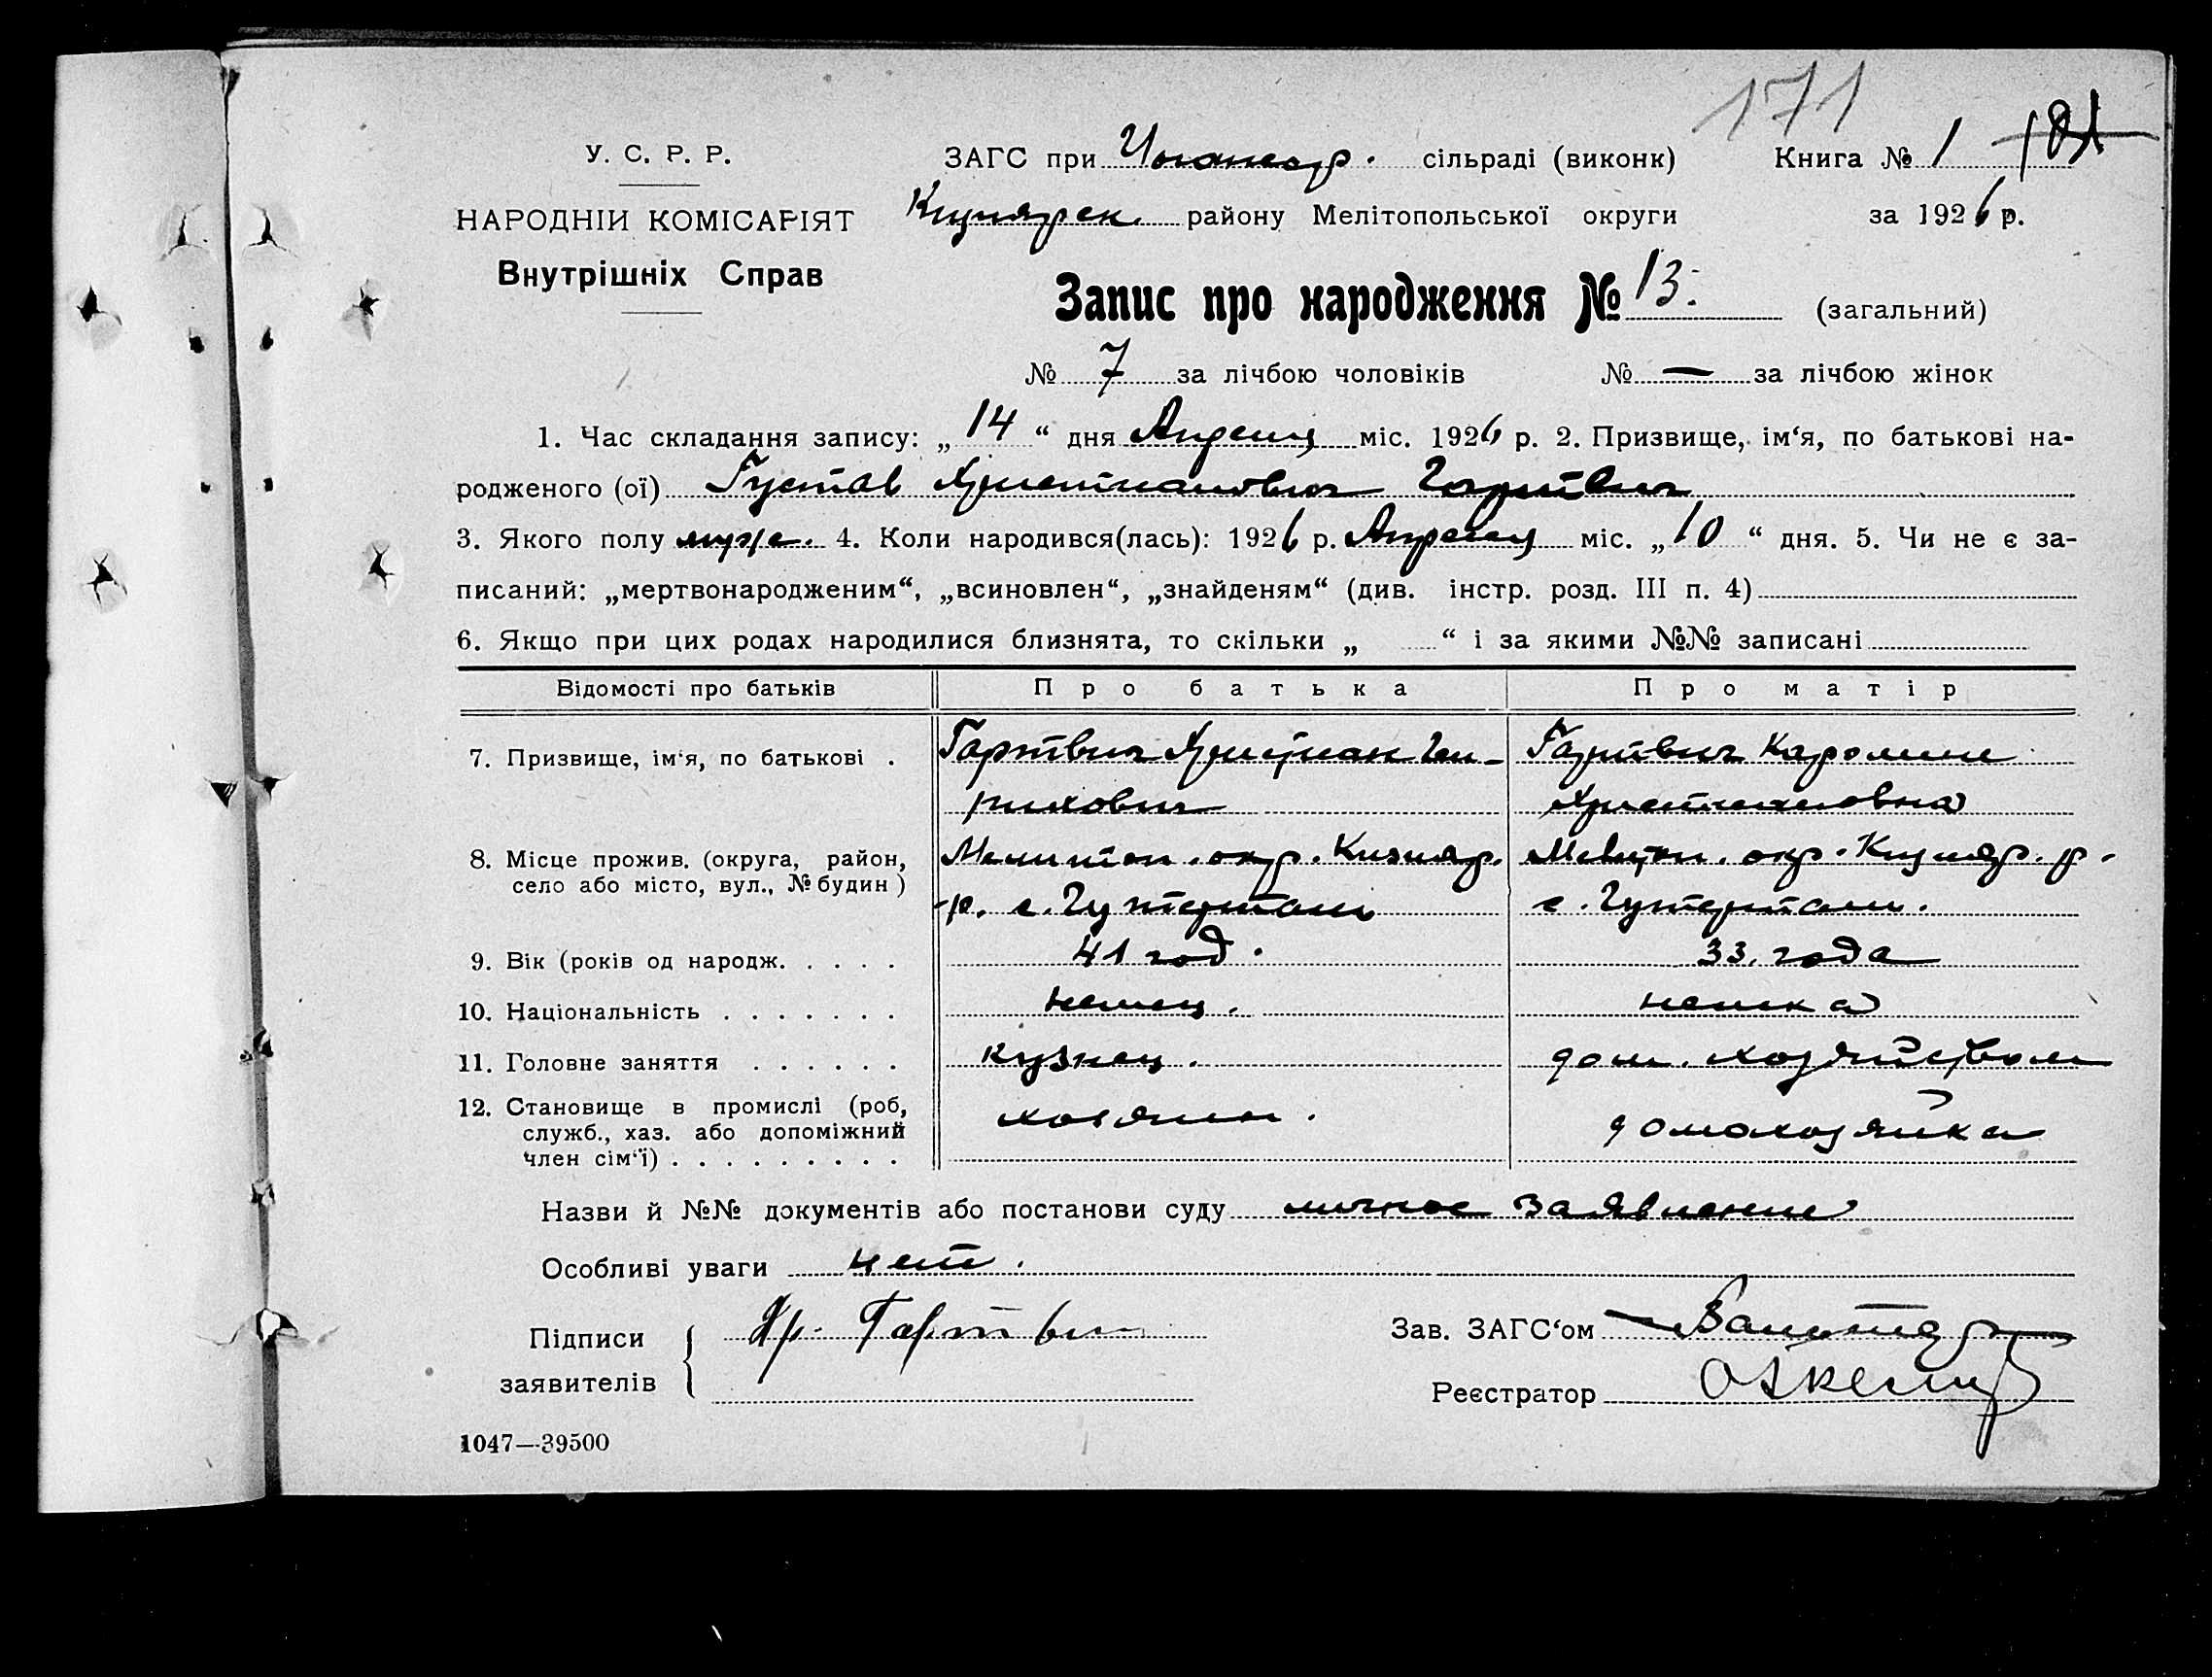 171
У. С. Р. Р.
ЗАГС при сільраді (виконк) Книга № 1 181
НАРОДНІЙ КОМІСАРІЯТ
району Мелітопольської округи за 1926 р.
Внутрішніх Справ
Запис про народження № 13. (загальний)
№ 7 за лічбою чоловіків № — за лічбою жінок
1. Час складання запису: „ 14 “ дня Апреля міс. 1926 р. 2. Призвище, ім‘я, по батькові на-
родженого (ої) Густав Христианович Гартвич
3. Якого полу муж. 4. Коли народився(лась): 1926 р. Апреля міс. „ 10 “ дня. 5. Чи не є за-
писаний: „мертвонародженим“, „всиновлен“, „знайденям“ (див. інстр. розд. III п. 4)
6. Якщо при цих родах народилися близнята, то скільки „ “ і за якими №№ записані
Відомості про батьків Про батька Про матір
7. Призвище, ім‘я, по батькові . Гартвич Христиан Ген- Гартвич Каролине
рихович Христиановна
8. Місце прожив. (округа, район, Мелитоп. окр. Кизияр. Мелитоп. окр. Кизияр. р.
село або місто, вул., № будин) р. с. Гутерталь с. Гутерталь.
9. Вік (років од народж. . . . . 41 год. 33 года
10. Національність . . . . . . . немец. немка
11. Головне заняття . . . . . . кузнец. дом. хозяйством
12. Становище в промислі (роб, хозяин. домохозяйка
служб., хаз. або допоміжний
член сім‘ї) . . . . . . . . .
Назви й №№ документів або постанови суду личное заявление
Особливі уваги нет.
Підписи Хр. Гартвич Зав. ЗАГС‘ом
заявителів Реєстратор
1047—39500